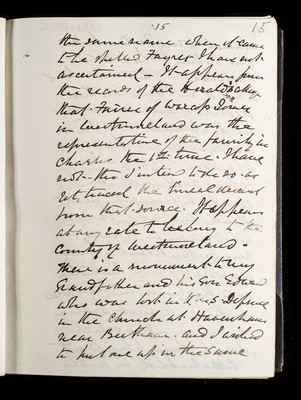 15 15
the same name. when it came
to be spelled Fayrer I have not
ascertained - It appears from
the records of the Heralds College
that Fairer of Warcop Tower
in Westmoreland was the
representative of the family in
Charles the 1st time. I have
not - tho' I intend to do so - as
yet, traced the lineal descent
from that source. It appears
at any rate to belong to the
County of Westmoreland -
There is a monument to my
Grandfather and his Son Edward
who was lost in the
in the Church at Haversham
near Beetham - and I wished
to put one up in the same